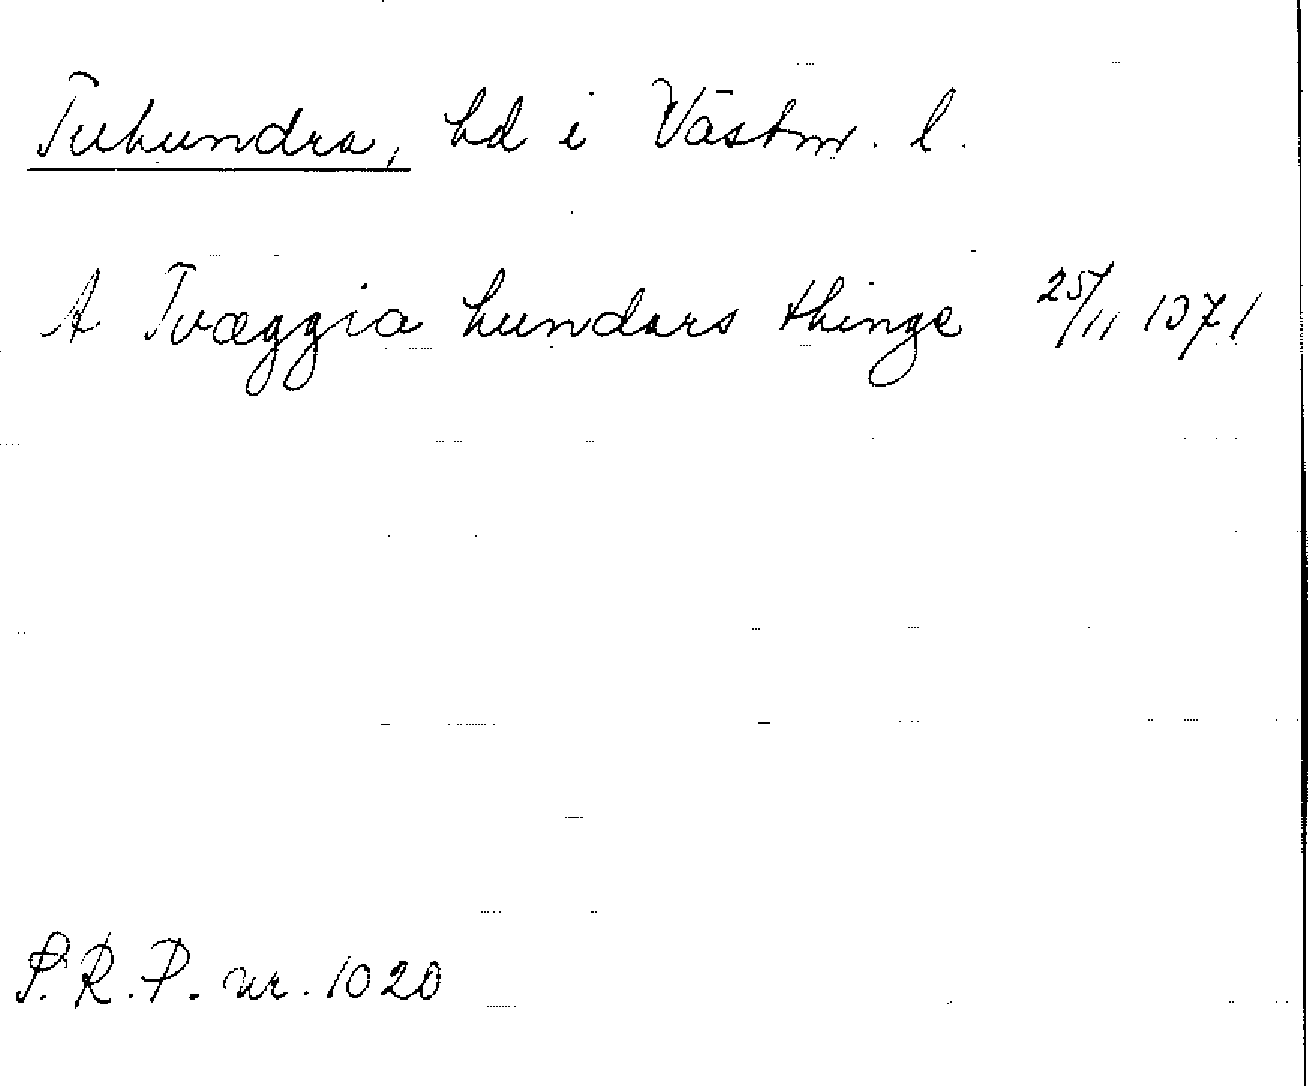 Tuhundra, hd i Västm. l.
A Tvæggia hundars thinge 25/11 1371
S.R.P. nr. 1020